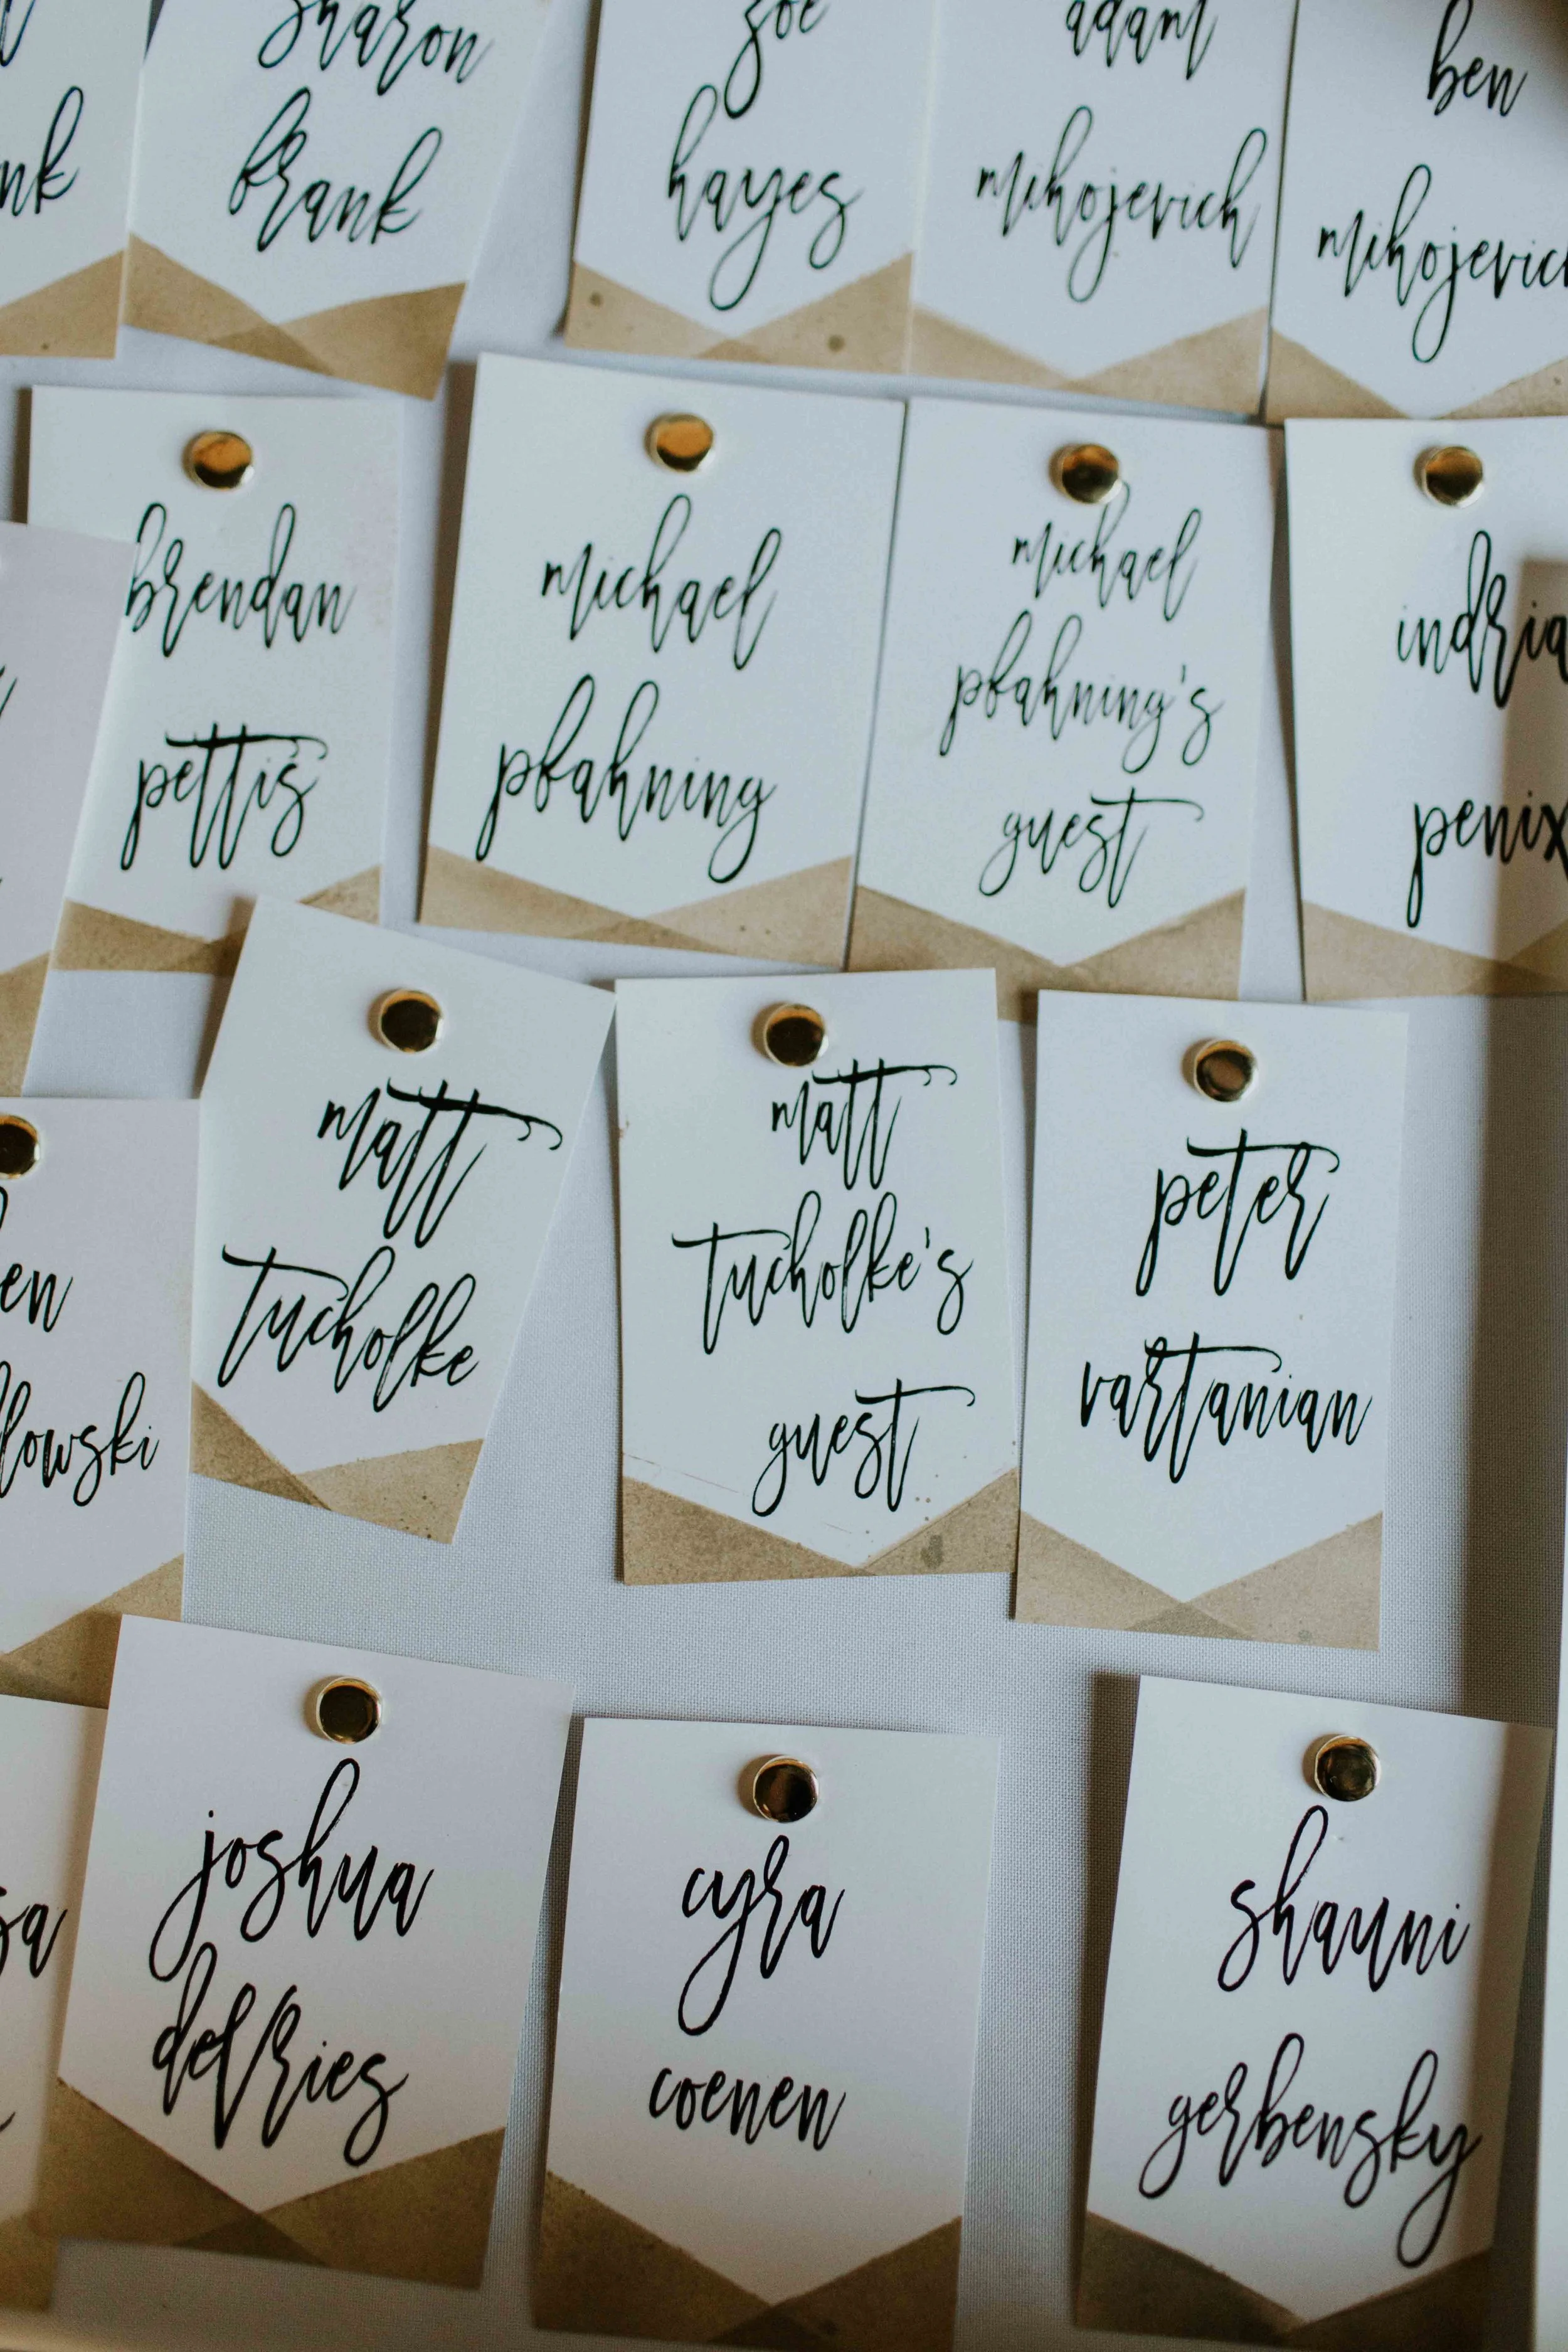 sharon
brank
zoe
hayes
adam
mihojevich
ben
mihojevich
brendan
pettis
michael
pfahning
michael
pfahning's
guest
indria
penix
en
lowski
matt
tucholke
matt
tucholke's
guest
peter
vartanian
sa
joshua
defries
cyra
coenen
shauni
gerbensky